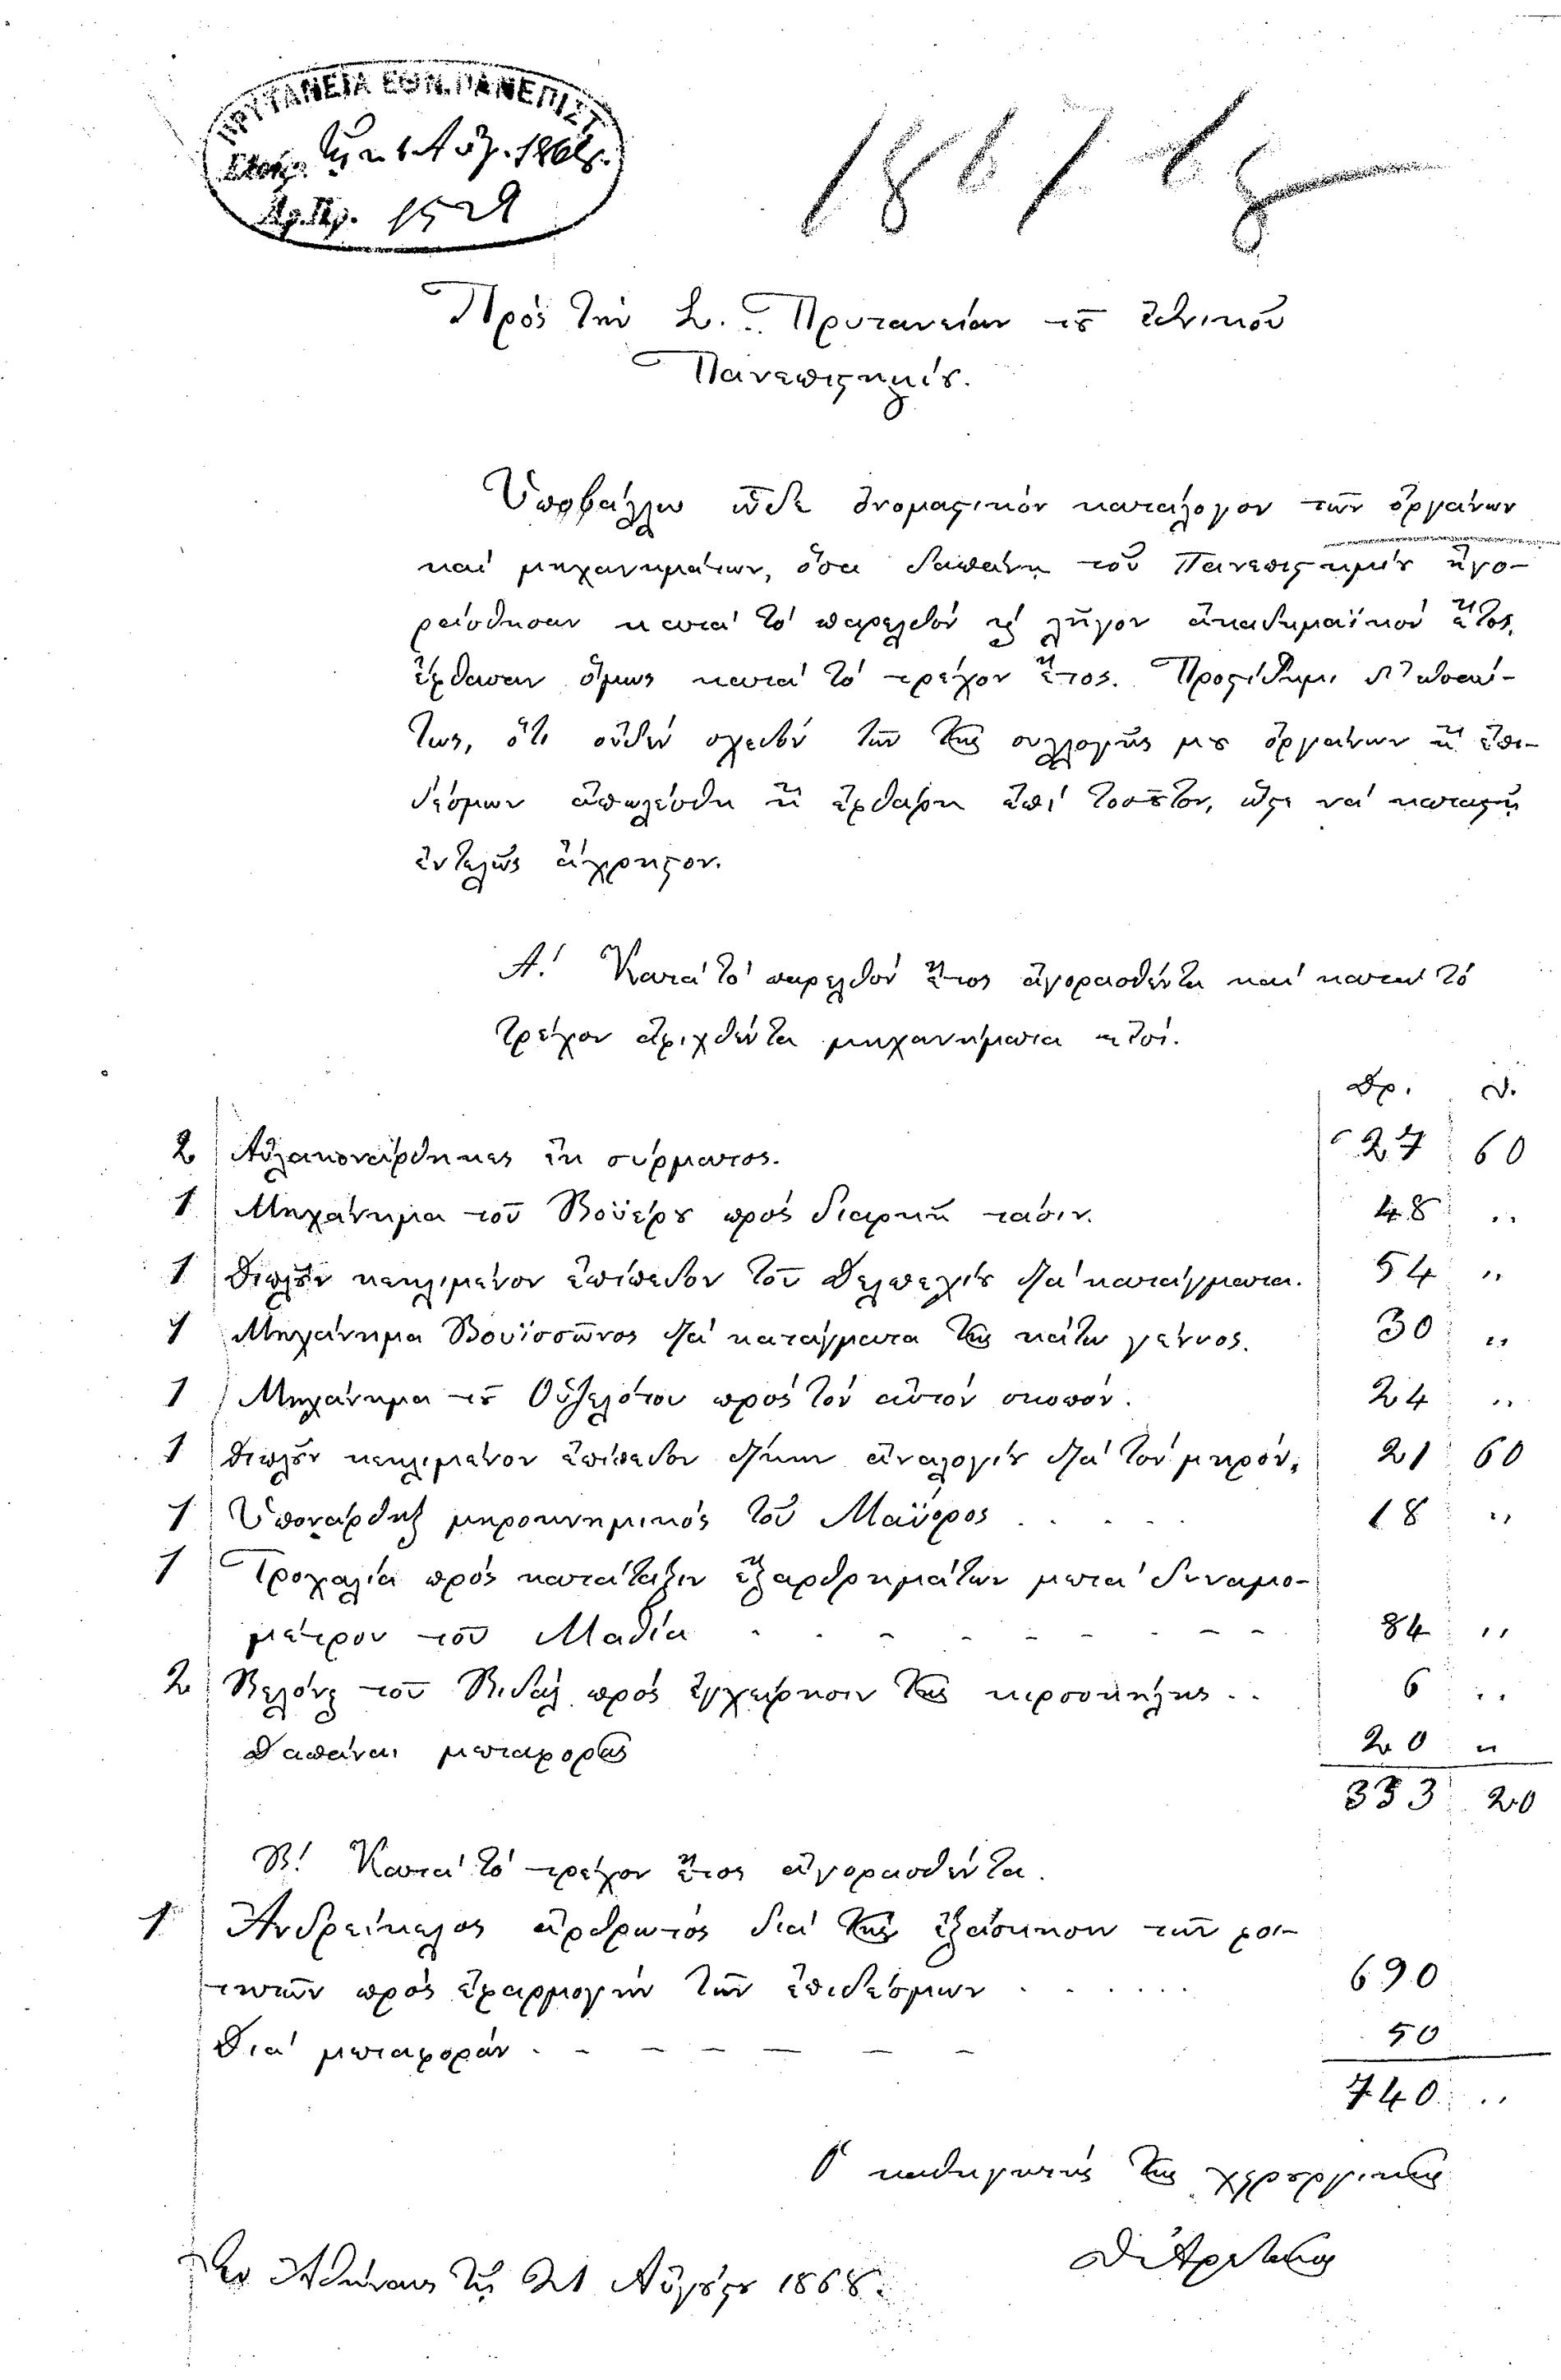 ΠΡΥΤΑΝΕΙΑ ΕΘΝ. ΠΑΝΕΠΙΣΤ.
τῇ 21 Αὐγ. 1868.
Ἀρ. Πρ. 1529
1867-68
Πρὸς τὴν Σ. Πρυτανείαν τȣ͂ ἐθνικοῦ
Πανεπιϛημίȣ.
Ὑποβάλλω ὧδε ὀνομαϛικὸν κατάλογον τῶν ὀργάνων
καὶ μηχανημάτων, ὅσα δαπάνῃ τοῦ Πανεπιϛημίȣ ἠγο-
ράσθησαν κατὰ τὸ παρελθὸν ϗ λῆγον ἀκαδημαϊκὸν ἔτος,
ἔφθασαν ὅμως κατὰ τὸ τρέχον ἔτος. Προϛίθημι δ' ὡσαύ-
τως, ὅτι οὐδὲν σχεδὸν τῶν τῆς συλλογῆς μȣ ὀργάνων ἢ ἐπι-
δέσμων ἀπωλέσθη ἢ ἐφθάρη ἐπὶ τοσȣ͂τον, ὥϛε νὰ καταϛῇ
ἐντελῶς ἄχρηϛον.
Α.' Κατὰ τὸ παρελθὸν ἔτος ἀγορασθέντα καὶ κατὰ τὸ
τρέχον ἀφιχθέντα μηχανήματα
Δρ. λ.
2 Αὐλακονάρθηκες ἐκ σύρματος. 27 60
1 Μηχάνημα τοῦ Βοϋέρȣ πρὸς διαρκῆ τάσιν. 48 ,,
1 Διπλȣ͂ν κεκλιμένον ἐπίπεδον τοῦ Δελπεχίȣ διὰ κατάγματα. 54 ,,
1 Μηχάνημα Βουϊσσῶνος διὰ κατάγματα τῆς κάτω γένυος. 30 ,,
1 Μηχάνημα τȣ͂ Οὐζελότου πρὸς τὸν αὐτὸν σκοπόν. 24 ,,
1 Διπλȣ͂ν κεκλιμένον ἐπίπεδον ἀναλογίȣ διὰ τὸν μηρόν. 21 60
1 Ὑπονάρθηξ μηροκνημικὸς τοῦ Μαΰορος . . . . . 18 ,,
1 Τροχαλία πρὸς κατάταξιν ἐξαρθρημάτων μετὰ δυναμο-
μέτρου τοῦ Μαθία - - - - - - - - - 84 ,,
2 Βελόναι τοῦ Βιδάλ πρὸς ἐγχείρησιν τῆς κιρσοκήλης . . 6 ,,
Δαπάναι μεταφορᾶς 20 ,,
333 20
Β.' Κατὰ τὸ τρέχον ἔτος ἀγορασθέντα.
1 Ἀνδρείκελος ἀρθρωτὸς διὰ τὴν ἐξάσκησιν τῶν φοι-
τητῶν πρὸς ἐφαρμογὴν τῶν ἐπιδέσμων . . . . . . 690
Διὰ μεταφορὰν . - - - - - - 50
740 ,,
Ὁ καθηγητὴς τῆς χειρουργικῆς
Ἐν Ἀθήναις τῇ 21 Αὐγȣ́ϛȣ 1868.